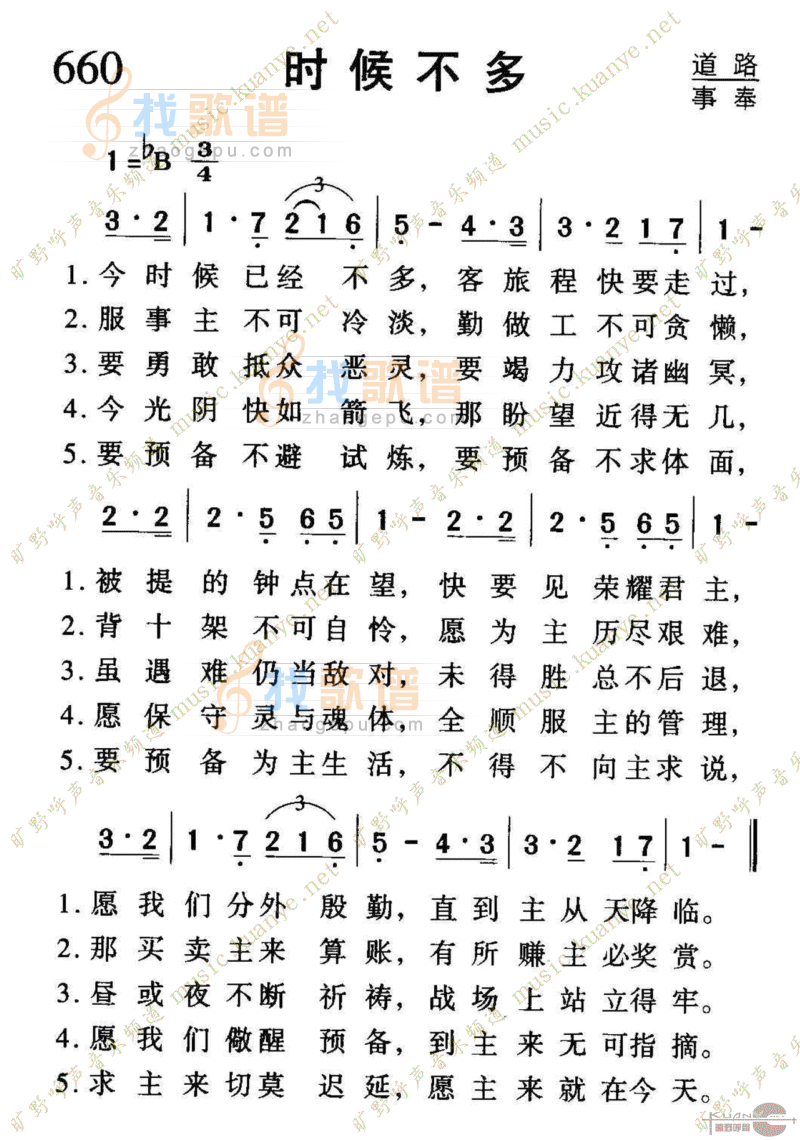 660 时候不多 道路
事奉
找歌谱
zhaogepu.com
1=♭B 3/4
3
3·2 | 1·7 216 | 5- 4·3 | 3·2 17 | 1-
1.今时候已经 不多，客旅程快要走过，
2.服事主不可 冷淡，勤做工不可贪懒，
3.要勇敢抵众 恶灵，要竭力攻诸幽冥，
4.今光阴快如 箭飞，那盼望近得无几，
5.要预备不避 试炼，要预备不求体面，
找歌谱
zhaogepu.com
2·2 | 2·5 65 | 1- 2·2 | 2·5 65 | 1-
1.被提的钟点在望，快要见荣耀君主，
2.背十架不可自怜，愿为主历尽艰难，
3.虽遇难仍当敌对，未得胜总不后退，
4.愿保守灵与魂体，全顺服主的管理，
5.要预备为主生活，不得不向主求说，
找歌谱
zhaogepu.com
3
3·2 | 1·7 216 | 5- 4·3 | 3·2 17 | 1- ‖
1.愿我们分外 殷勤，直到主从天降临。
2.那买卖主来 算账，有所赚主必奖赏。
3.昼或夜不断 祈祷，战场上站立得牢。
4.愿我们儆醒 预备，到主来无可指摘。
5.求主来切莫 迟延，愿主来就在今天。
旷野呼声音乐频道 music.kuanye.net